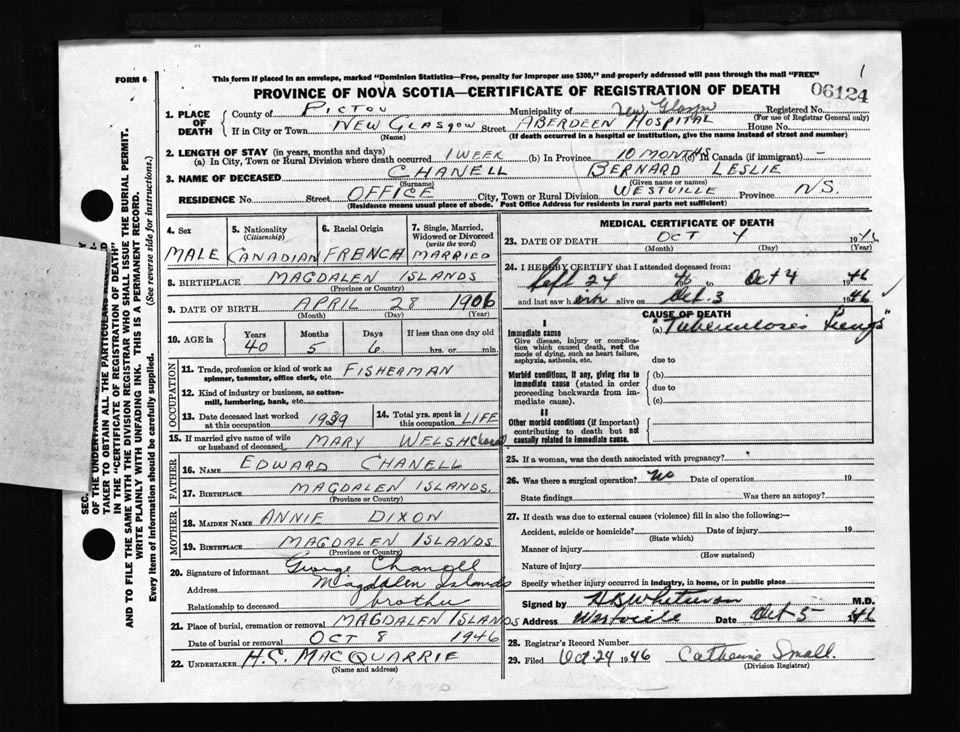 FORM 6
This form if placed in an envelope, marked "Dominion Statistics—Free, penalty for improper use $300," and properly addressed will pass through the mail "FREE"
PROVINCE OF NOVA SCOTIA—CERTIFICATE OF REGISTRATION OF DEATH
06124
1. PLACE OF DEATH
County of PICTOU Municipality of New Glasgow Registered No.
(For use of Registrar General only)
If in City or Town NEW GLASGOW Street ABERDEEN HOSPITAL House No.
(Name) (If death occurred in a hospital or institution, give the name instead of street and number)
2. LENGTH OF STAY (in years, months and days)
(a) In City, Town or Rural Division where death occurred 1 WEEK (b) In Province 10 MONTHS (c) in Canada (if immigrant) —
3. NAME OF DECEASED CHANELL BERNARD LESLIE
(Surname) (Given name or names)
RESIDENCE No. Street OFFICE City, Town or Rural Division WESTVILLE Province N.S.
(Residence means usual place of abode. Post Office Address for residents in rural parts not sufficient)
4. Sex
MALE
5. Nationality
(Citizenship)
CANADIAN
6. Racial Origin
FRENCH
7. Single, Married, Widowed or Divorced
(write the word)
MARRIED
8. BIRTHPLACE MAGDALEN ISLANDS
(Province or Country)
9. DATE OF BIRTH APRIL 28 1906
(Month) (Day) (Year)
10. AGE in
Years Months Days If less than one day old
40 5 6 hrs. or min.
OCCUPATION
11. Trade, profession or kind of work as spinner, teamster, office clerk, etc. FISHERMAN
12. Kind of industry or business, as cotton-mill, lumbering, bank, etc.
13. Date deceased last worked at this occupation 1939
14. Total yrs. spent in this occupation LIFE
15. If married give name of wife or husband of deceased MARY WELSH Chanell
FATHER
16. NAME EDWARD CHANELL
17. BIRTHPLACE MAGDALEN ISLANDS.
(Province or Country)
MOTHER
18. MAIDEN NAME ANNIE DIXON
19. BIRTHPLACE MAGDALEN ISLANDS
(Province or Country)
20. Signature of informant George Changell
Address Magdalen Islands
Relationship to deceased brother
21. Place of burial, cremation or removal MAGDALEN ISLANDS
Date of burial or removal OCT 8 1946
22. UNDERTAKER H.C. MACQUARRIE
(Name and address)
MEDICAL CERTIFICATE OF DEATH
23. DATE OF DEATH OCT 4 1946
(Month) (Day) (Year)
24. I HEREBY CERTIFY that I attended deceased from:
Sept 24 46 to Oct 4 1946
and last saw him alive on Oct. 3 1946
CAUSE OF DEATH
I
Immediate cause
Give disease, injury or complication which caused death, not the mode of dying, such as heart failure, asphyxia, asthenia, etc.
(a) "Tuberculosis Lungs"
due to
Morbid conditions, if any, giving rise to immediate cause (stated in order proceeding backwards from immediate cause).
(b)
due to
(c)
II
Other morbid conditions (if important) contributing to death but not causally related to immediate cause.
25. If a woman, was the death associated with pregnancy?
26. Was there a surgical operation? No Date of operation 19
State findings Was there an autopsy?
27. If death was due to external causes (violence) fill in also the following:—
Accident, suicide or homicide? Date of injury 19
(State which)
Manner of injury
(How sustained)
Nature of injury
Specify whether injury occurred in industry, in home, or in public place
Signed by M.D.
Address Westville Date Oct-5- 1946
28. Registrar's Record Number
29. Filed Oct 24 1946 Catherine Small.
(Division Registrar)
SEC.
OF THE UNDERTAKER
TAKER TO OBTAIN ALL THE PARTICULARS
IN THE "CERTIFICATE OF REGISTRATION OF DEATH"
AND TO FILE THE SAME WITH THE DIVISION REGISTRAR WHO SHALL ISSUE THE BURIAL PERMIT.
WRITE PLAINLY WITH UNFADING INK. THIS IS A PERMANENT RECORD.
Every item of information should be carefully supplied. (See reverse side for instructions.)